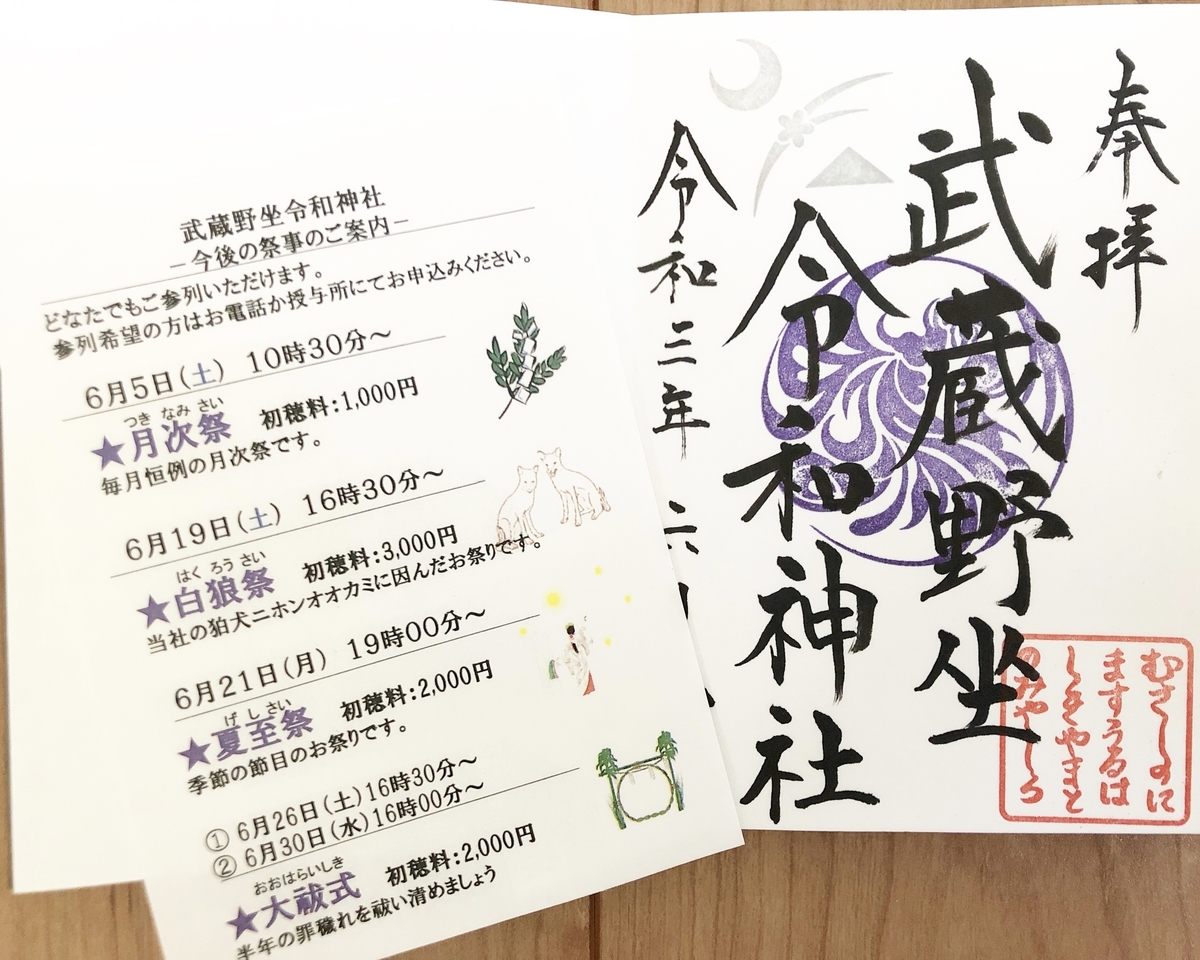 武蔵野坐令和神社
－今後の祭事のご案内－
どなたでもご参列いただけます。
参列希望の方はお電話か授与所にてお申込みください。
6月5日（土） 10時30分～
つき なみ さい
★月次祭 初穂料：1,000円
毎月恒例の月次祭です。
6月19日（土） 16時30分～
はく ろう さい
★白狼祭 初穂料：3,000円
当社の狛犬ニホンオオカミに因んだお祭りです。
6月21日（月） 19時00分～
げ し さい
★夏至祭 初穂料：2,000円
季節の節目のお祭りです。
① 6月26日（土）16時30分～
② 6月30日（水）16時00分～
おおはらいしき
★大祓式 初穂料：2,000円
半年の罪穢れを祓い清めましょう
奉拝
武蔵野坐
令和神社
令和三年 六月
むさしのに
ますうるは
しきやまと
のみやしろ